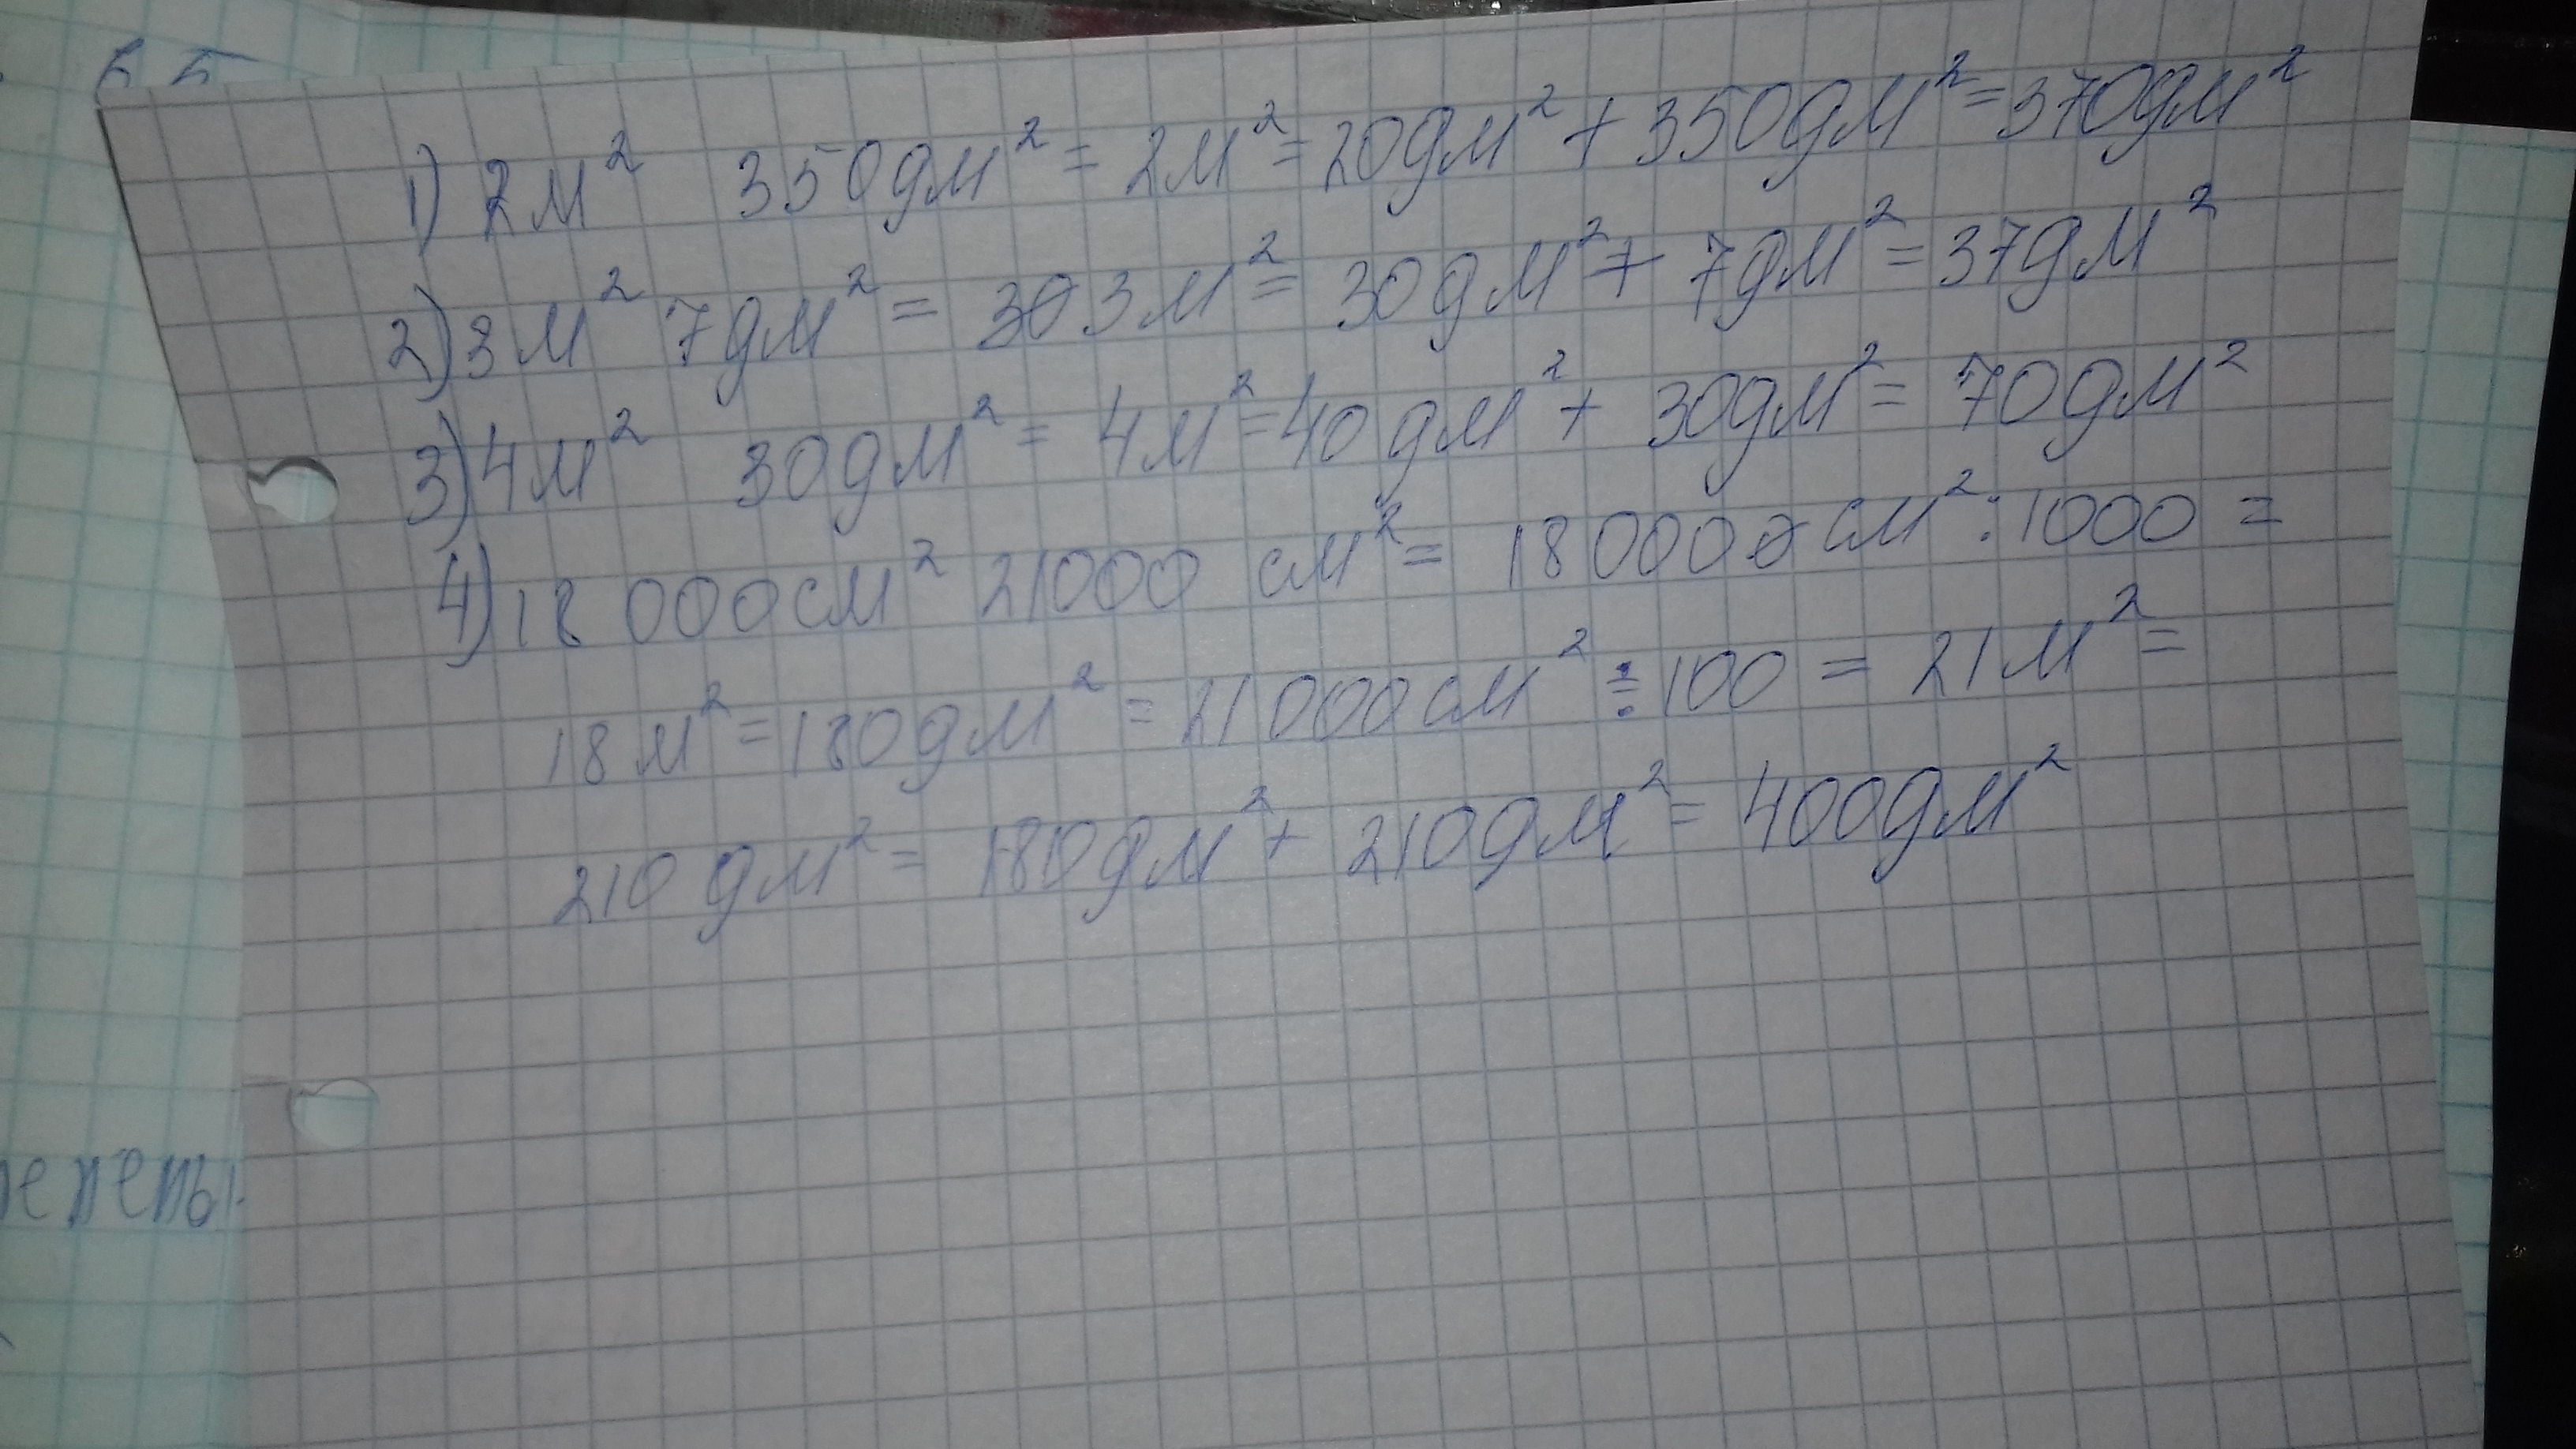 65
1) 2м² 350дм² = 2м² = 20дм² + 350дм² = 370дм²
2) 3м² 7дм² = 30 3м² = 30дм² + 7дм² = 37дм²
3) 4м² 30дм² = 4м² = 40дм² + 30дм² = 70дм²
4) 18 000см² 21000 см² = 18 0000 см² : 1000 =
18м² = 180дм² = 21000см² : 100 = 21м² =
210 дм² = 180дм² + 210дм² = 400дм²